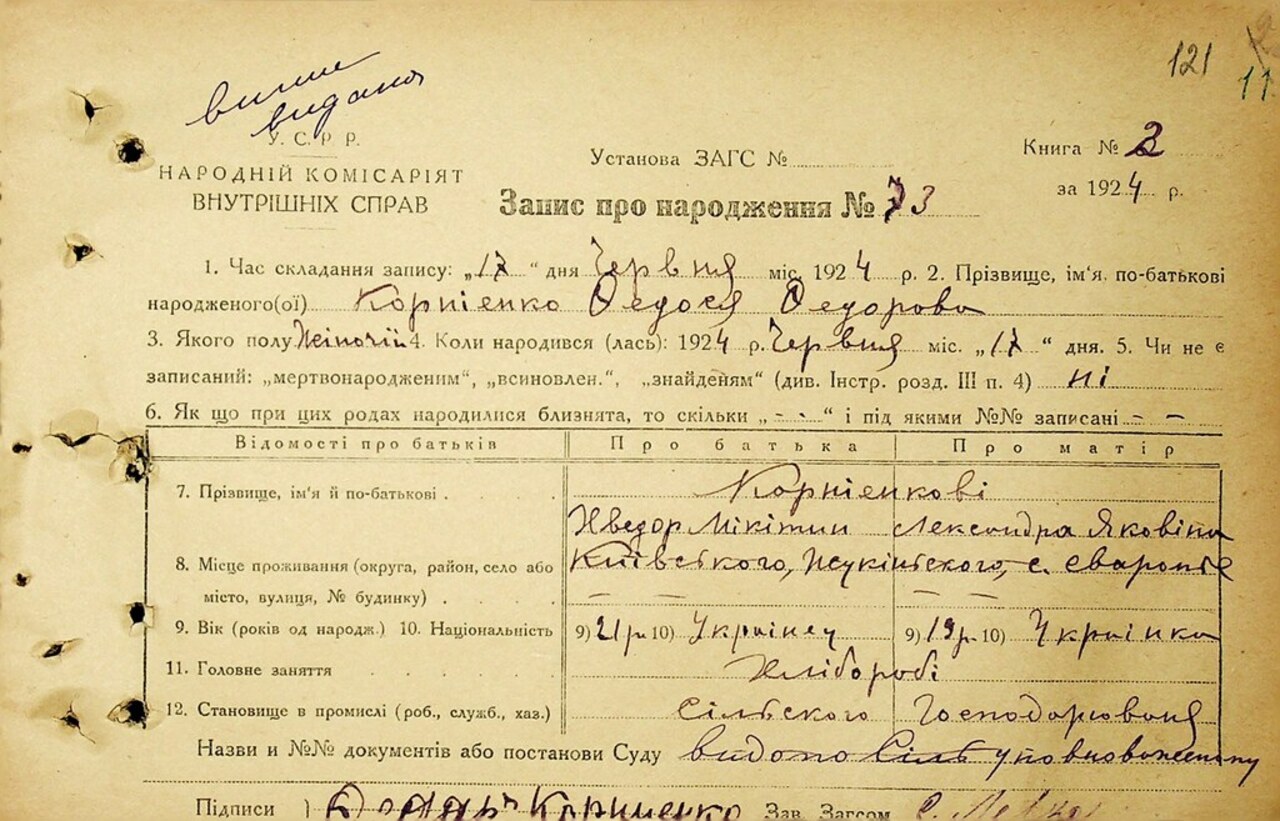 121
11
У. С. Р Р.
НАРОДНІЙ КОМІСАРІЯТ
ВНУТРІШНІХ СПРАВ
Установа ЗАГС №
Книга № 2
за 1924 р.
Запис про народження № 73
1. Час складання запису: „17“ дня Червня міс. 1924 р. 2. Прізвище, ім‘я. по-батькові
народженого(ої) Корнієнко Федося Федорова
3. Якого полу Жіночій 4. Коли народився (лась): 1924 р. Червня міс. „17“ дня. 5. Чи не є
записаний: „мертвонародженим“, „всиновлен.“, „знайденям“ (див. Інстр. розд. III п. 4) ні
6. Як що при цих родах народилися близнята, то скільки „- -“ і під якими №№ записані - -
Відомості про батьків Про батька Про матір
7. Прізвище, ім‘я й по-батькові Корнієнкові
Хведор Мікітин Лександра Яковіна
8. Місце проживання (округа, район, село або Київського, с.
місто, вулиця, № будинку)
9. Вік (років од народж.) 10. Національність 9) 21 р. 10) Українец 9) 19 р. 10) Українка
11. Головне заняття Хліборобі
12. Становище в промислі (роб., служб., хаз.) Сільського Господарювання
Назви и №№ документів або постанови Суду
Підписи Корниенко Зав. Загсом